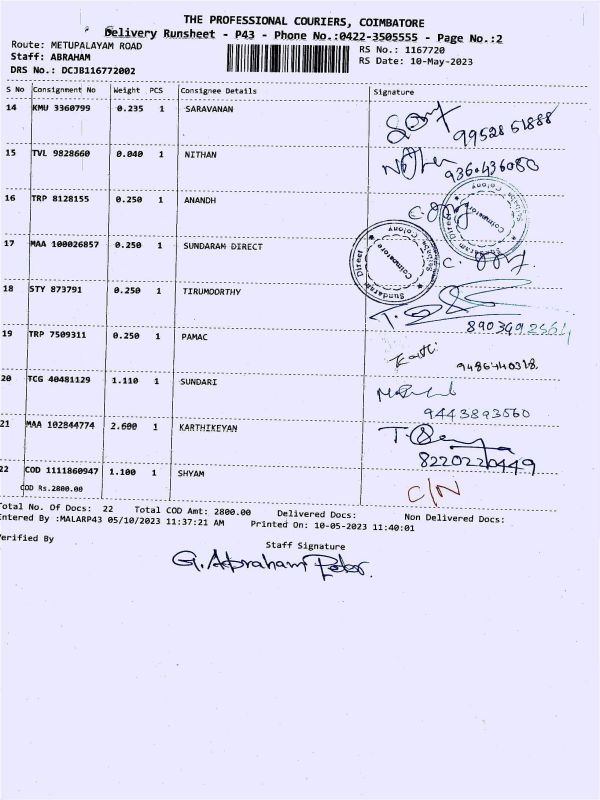 THE PROFESSIONAL COURIERS, COIMBATORE
Delivery Runsheet - P43 - Phone No.:0422-3505555 - Page No.:2
Route: METUPALAYAM ROAD
RS No.: 1167720
Staff: ABRAHAM
RS Date: 10-May-2023
DRS No.: DCJB116772002
S No Consignment No Weight PCS Consignee Details Signature
14 KMU 3360799 0.235 1 SARAVANAN
9952851888
15 TVL 9828660 0.040 1 NITHAN
16 TRP 8128155 0.250 1 ANANDH
17 MAA 100026857 0.250 1 SUNDARAM DIRECT
Sundaram Direct
Saibaba Colony
Coimbatore
18 STY 873791 0.250 1 TIRUMOORTHY
19 TRP 7509311 0.250 1 PAMAC
9486440318
20 TCG 40481129 1.110 1 SUNDARI
9443893560
21 MAA 102844774 2.600 1 KARTHIKEYAN
8220220449
22 COD 1111860947 1.100 1 SHYAM
C/N
COD Rs.2800.00
Total No. Of Docs: 22 Total COD Amt: 2800.00 Delivered Docs: Non Delivered Docs:
Entered By :MALARP43 05/10/2023 11:37:21 AM Printed On: 10-05-2023 11:40:01
Verified By
Staff Signature
G. Abraham Peter.